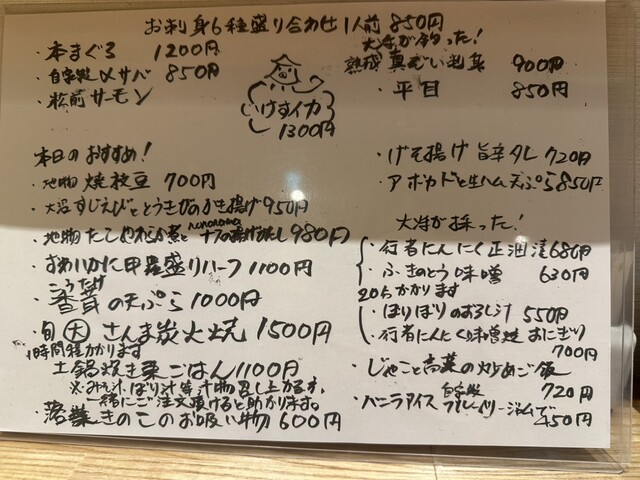 お刺身6種盛り合わせ1人前 850円
・本まぐろ 1200円
・自家製〆サバ 850円
・松前サーモン
いけすイカ
1300円
大将が釣った!
熟成 真ぞい 900円
・平目 850円
本日のおすすめ!
・地物 焼枝豆 700円
・大沼 すじえびととうきびのかき揚げ 950円
・地物 たこやわらか煮と 980円
・ずわいかに甲羅盛りハーフ 1100円
こうたけ
・香茸の天ぷら 1000円
・旬 大 さんま炭火焼 1500円
1時間程かかります
土鍋炊き栗ごはん 1100円
※みそ汁、ぼり汁等汁物召し上がる方、
一緒にご注文頂けると助かります。
・落葉きのこのお吸い物 600円
・げそ揚げ 旨辛タレ 720円
・アボカドと生ハム天ぷら 850円
大将が採った!
・行者にんにく正油漬 680円
・ふきのとう味噌 630円
20分かかります
・ぼりぼりのおろし汁 550円
・行者にんにく味噌焼おにぎり
700円
・じゃこと高菜の炒めご飯
720円
自家製
・バニラアイス ブルーベリージャムで
450円